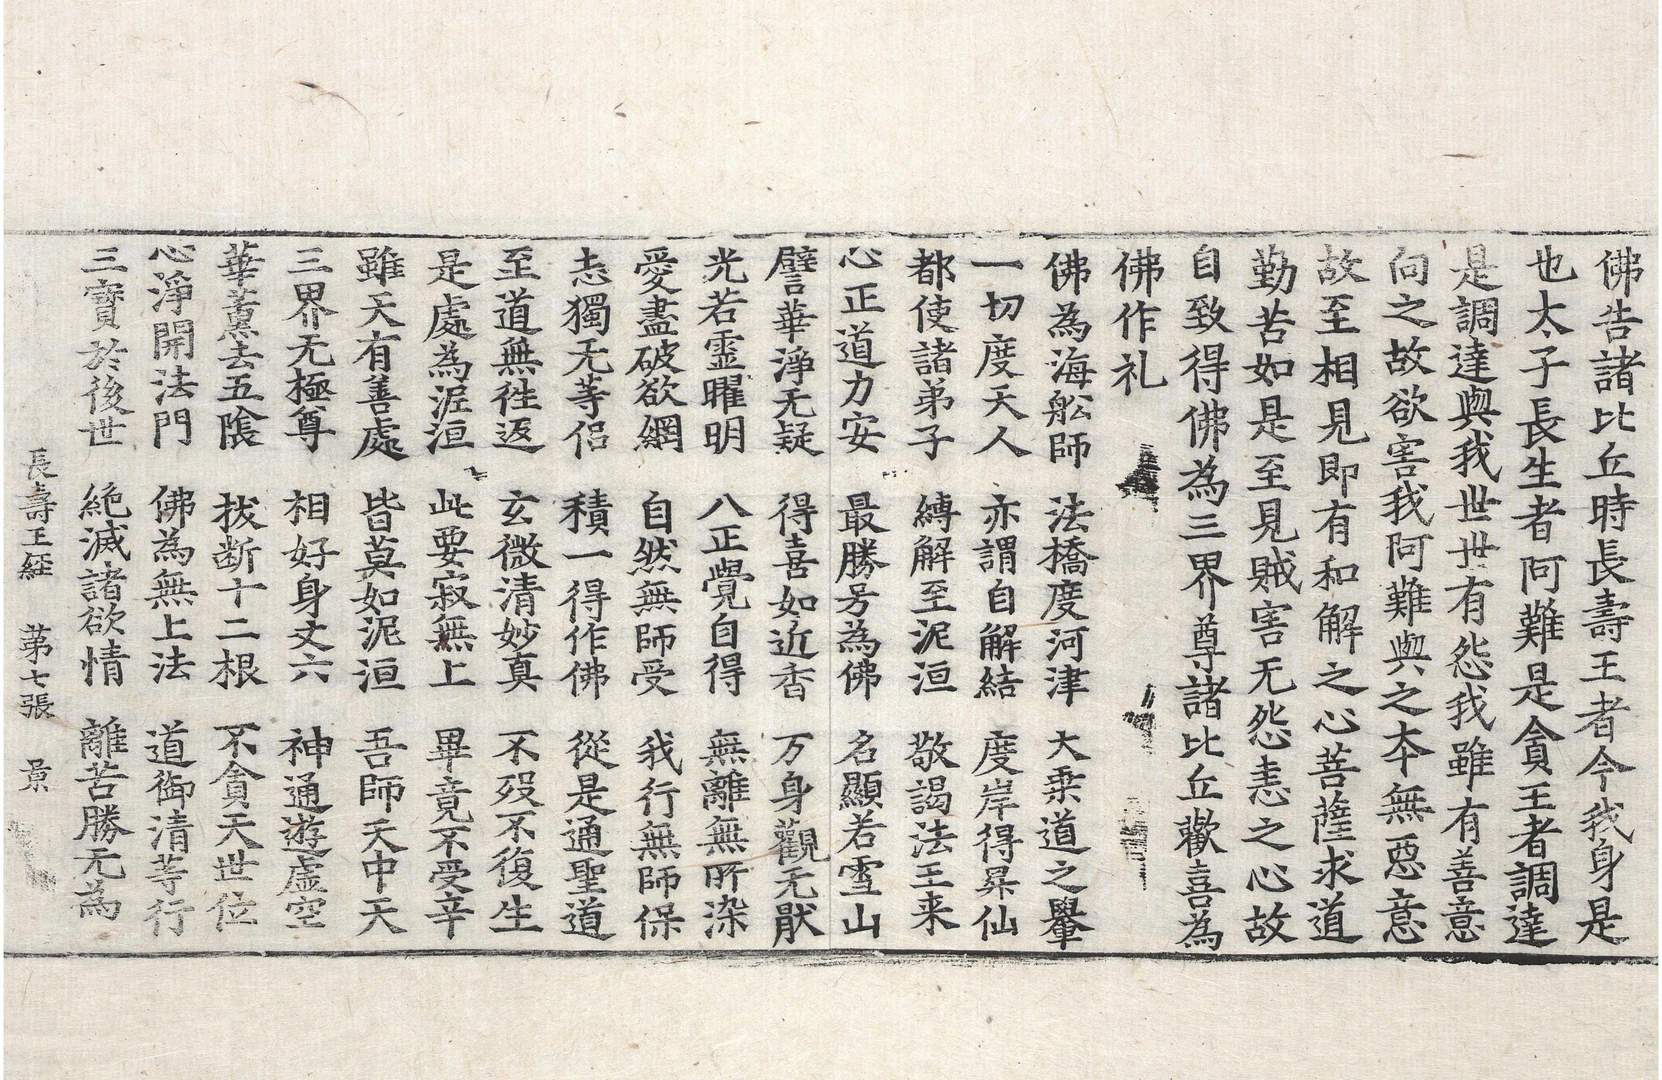 佛告諸比丘時長壽王者今我身是
也太子長生者阿難是貪王者調達
是調達與我世世有怨我雖有善意
向之故欲害我阿難與之夲無惡意
故至相見即有和解之心菩薩求道
勤苦如是至見賊害无怨恚之心故
自致得佛為三界尊諸比丘歡喜為
佛作礼
佛為海舩師 法橋度河津 大乗道之轝
一切度天人 亦謂自解結 度岸得昇仙
都使諸弟子 縛解至泥洹 敬謁法王来
心正道力安 最勝号為佛 名顯若雪山
譬華淨无疑 得喜如近香 万身觀无猒
光若霊曜明 八正覺自得 無離無所染
愛盡破欲網 自然無師受 我行無師保
志獨无等侶 積一得作佛 從是通聖道
至道無徃返 玄微清妙真 不歿不復生
是處為泥洹 此要寂無上 畢竟不受辛
雖天有善處 皆莫如泥洹 吾師天中天
三界无極尊 相好身丈六 神通遊虛空
華薰去五陰 拔断十二根 不貪天世位
心淨開法門 佛為無上法 道御清等行
三寶於後世 絶滅諸欲情 離苦勝无為
長壽王経 苐七張 景